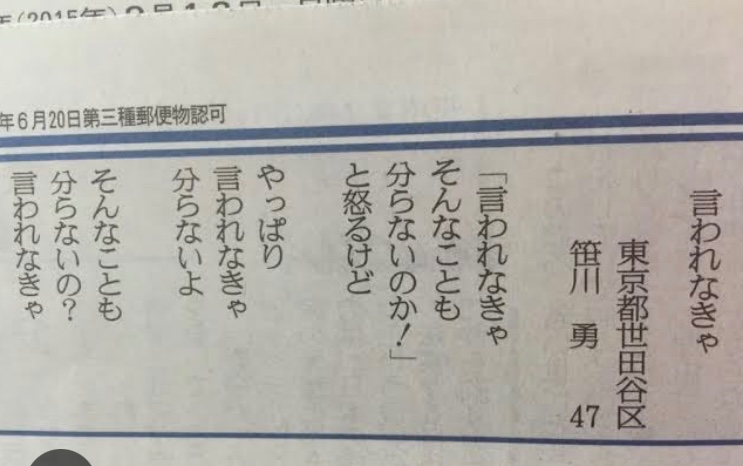 年(2015年)
年6月20日第三種郵便物認可
言われなきゃ
東京都世田谷区
笹川 勇 47
「言われなきゃ
そんなことも
分らないのか!」
と怒るけど
やっぱり
言われなきゃ
分らないよ
そんなことも
分らないの?
言われなきゃ